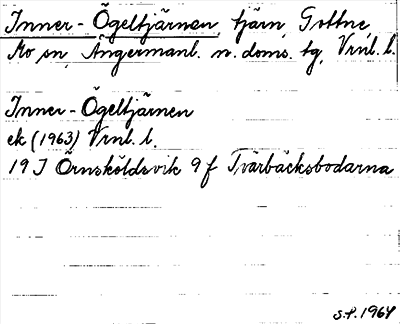 Inner-Ögeltjärnen, tjärn, Gottne
Mo sn, Ångermanl. n. doms. tg, Vrnl. l.
Inner-Ögeltjärnen
ek (1963) Vrnl. l.
19 I Örnsköldsvik 9 f Tvärbäcksbodarna
S.P. 1964